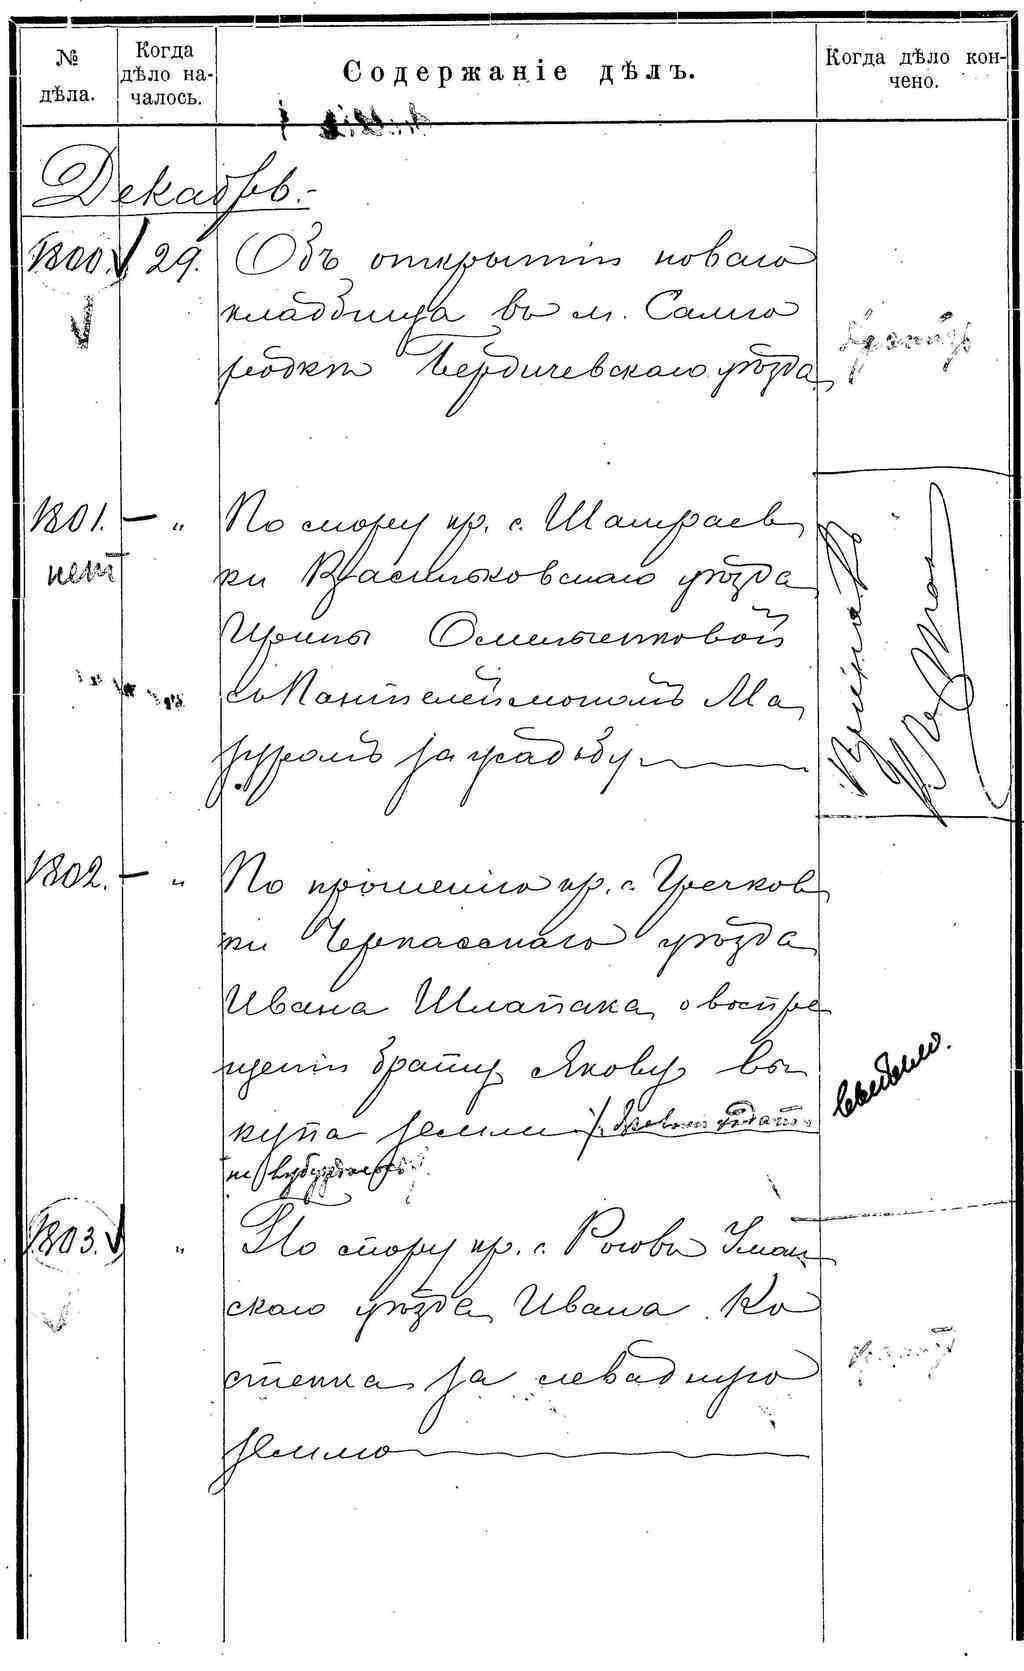 № дѣла.
Когда дѣло на-
чалось.
Содержаніе дѣлъ.
Когда дѣло кон-
чено.
Декабрь.-
1800. 29. Объ открытіи новаго
кладбища въ м. Самго
родкѣ Бердичевскаго уѣзда
1801. — „ По спору кр. с. Шамраев
нет ки Васильковскаго уѣзда
Ирины Омельченковой
съ Пантелеймономъ Ма
зуромъ за усадьбу
1802. — „ По прошенію кр. с. Гречков
ки Черкасскаго уѣзда
Ивана Шлапака о воспре
щеніи брату Якову вы
купа земли
1803. „ По спору кр. с. Роговы Уман
скаго уѣзда Ивана Ко
стенка за левадную
землю